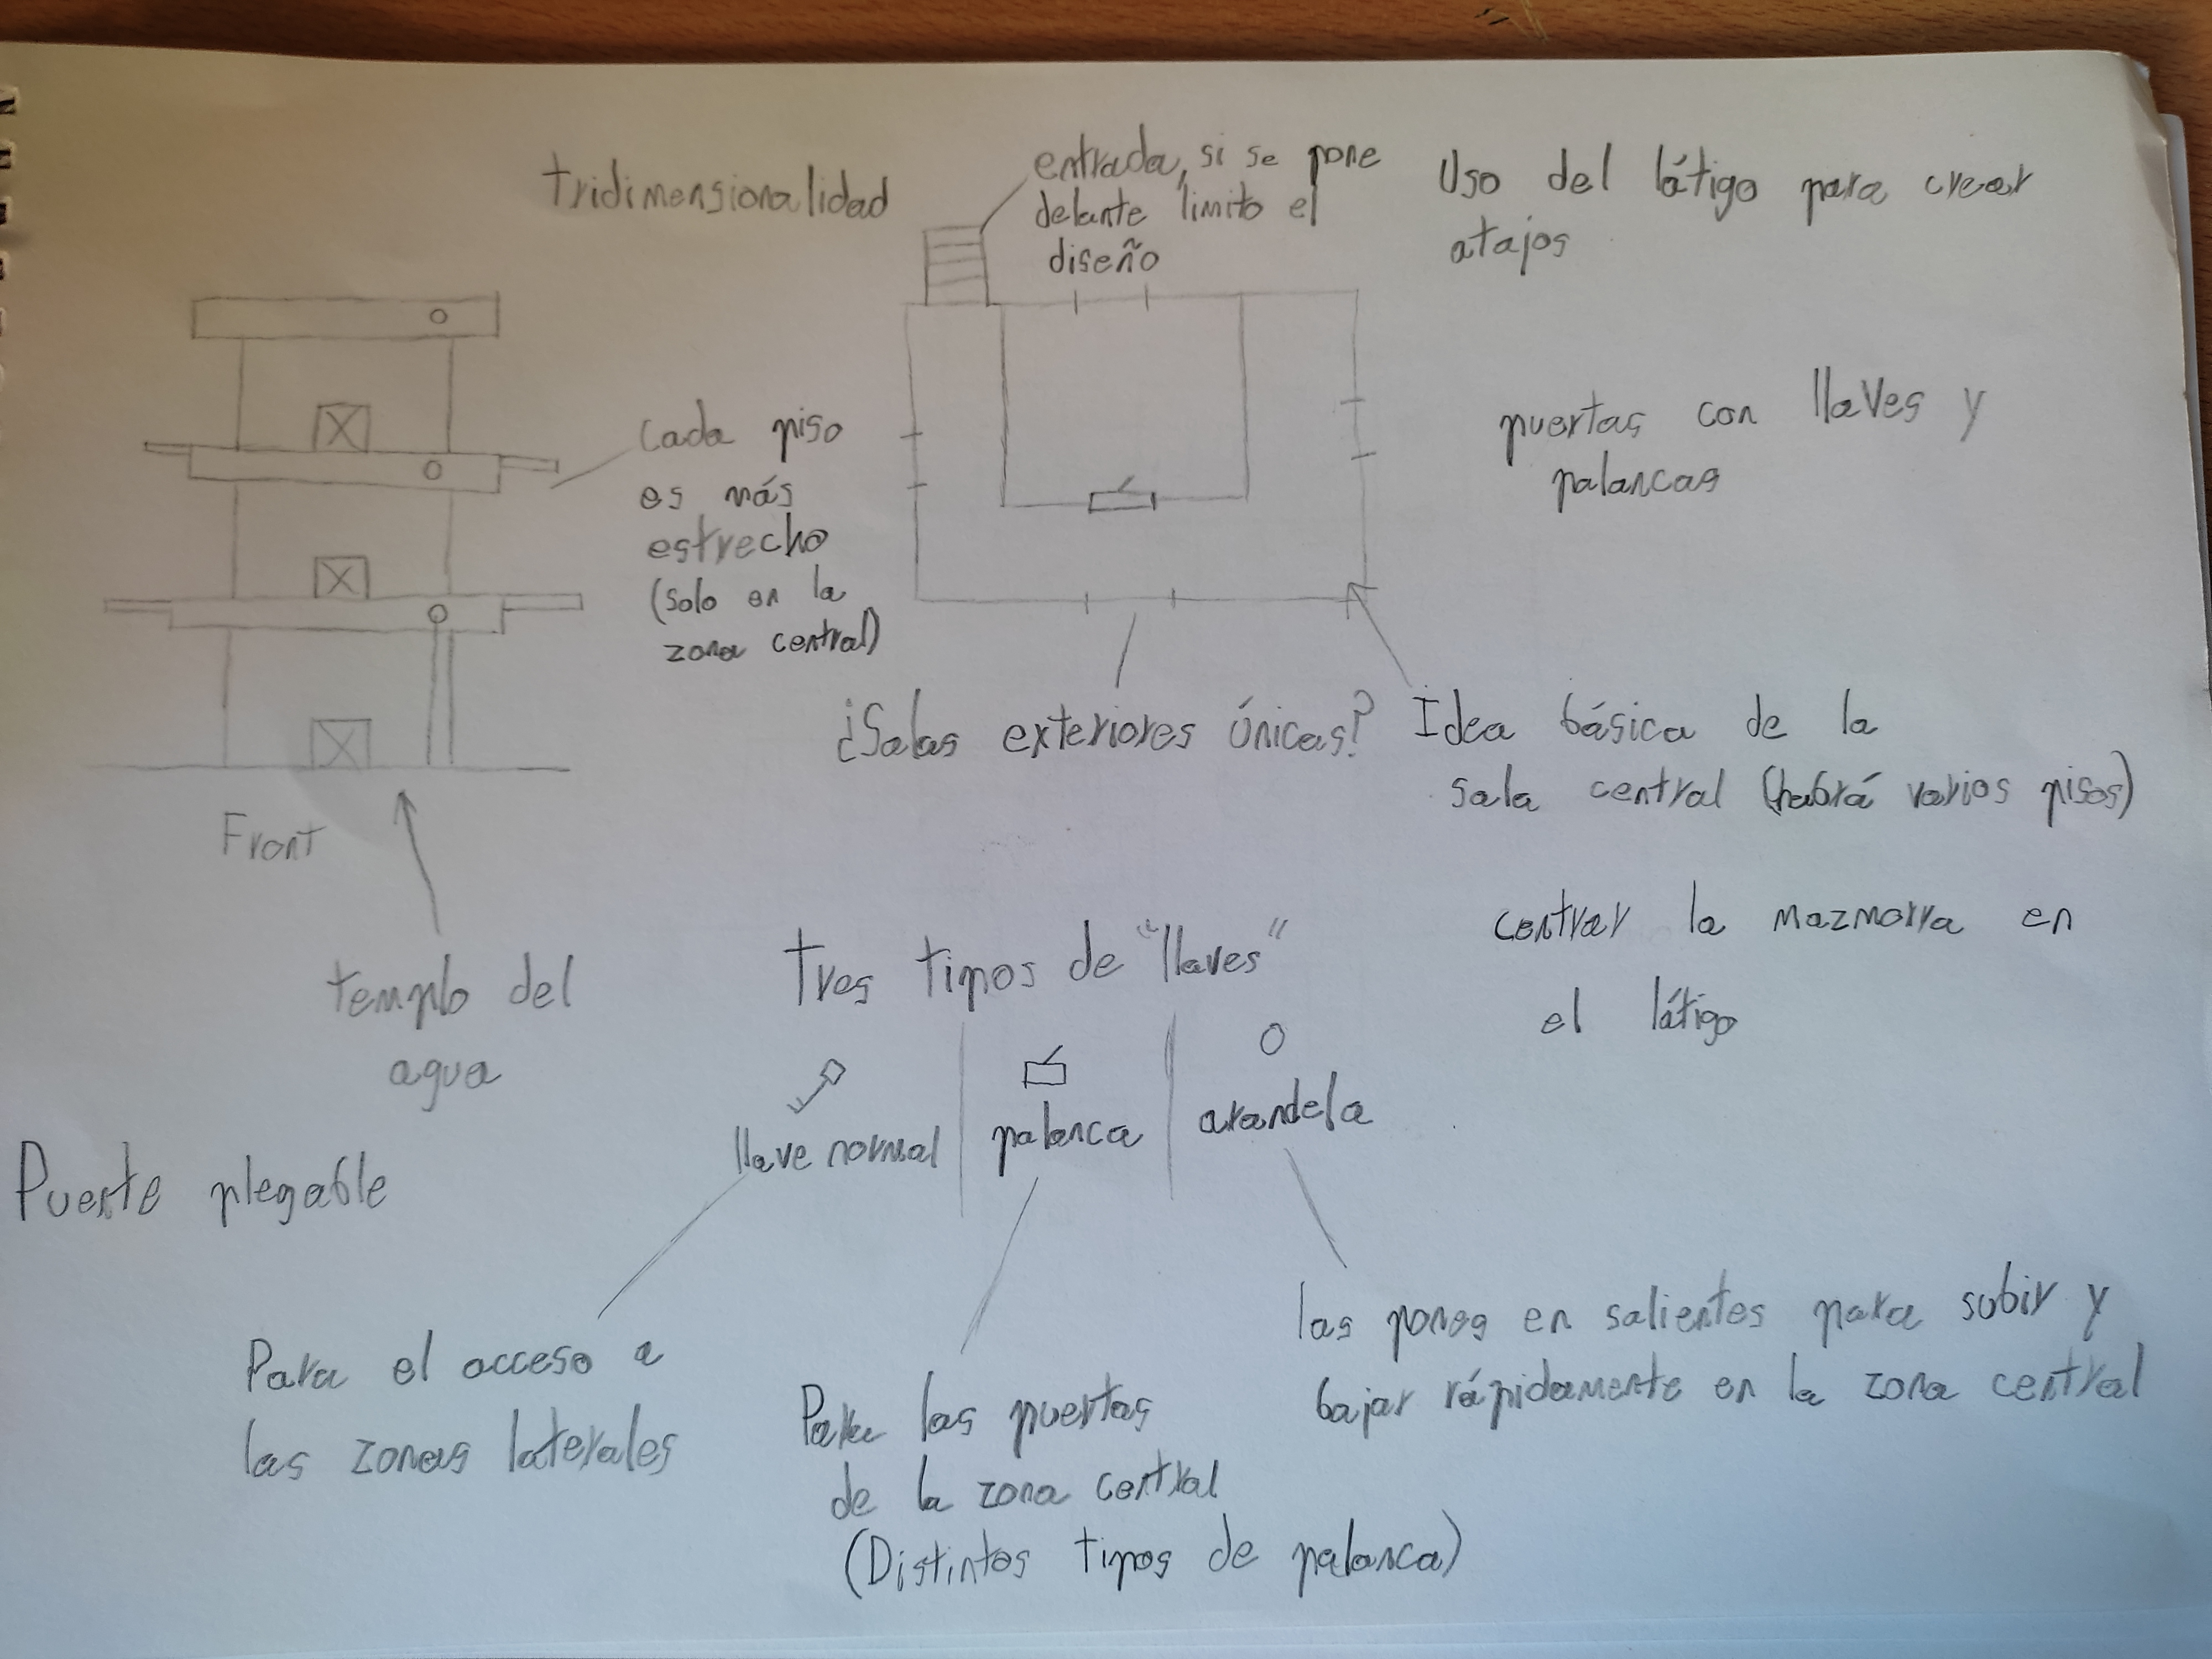 tridimensionalidad
entrada, si se pone
delante limito el
diseño
Uso del látigo para crear
atajos
cada piso
es más
estrecho
(solo en la
zona central)
puertas con llaves y
palancas
¿Salas exteriores únicas?
Idea básica de la
sala central (habrá varios pisos)
Front
templo del
agua
centrar la mazmorra en
el látigo
Tres tipos de "llaves"
llave normal
palanca
arandela
Puente plegable
Para el acceso a
las zonas laterales
Para las puertas
de la zona central
(Distintos tipos de palanca)
las pones en salientes para subir y
bajar rápidamente en la zona central